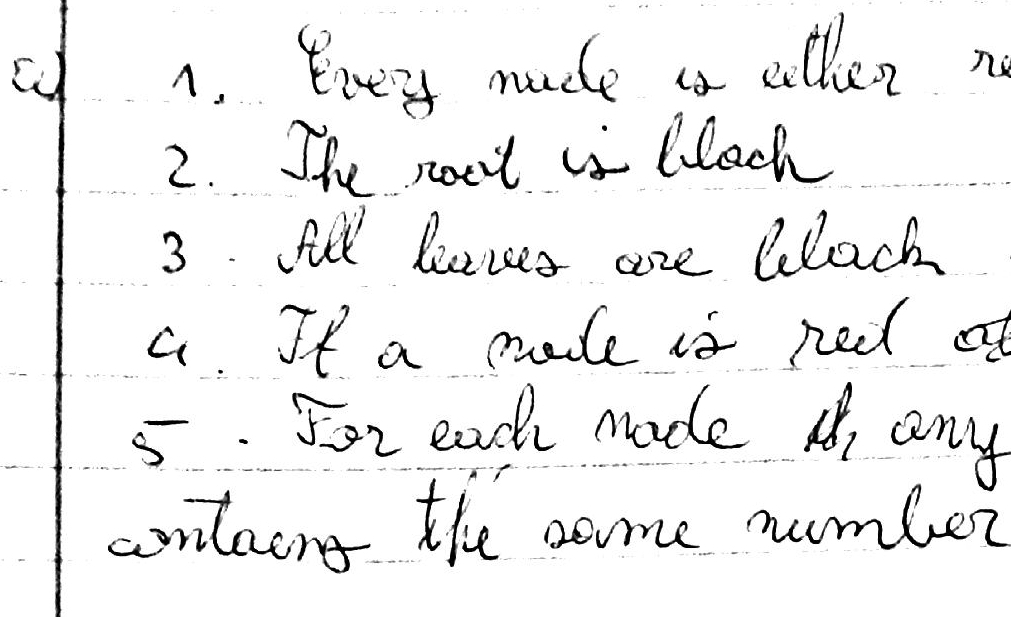 a) 1. Every node is either re
2. The root is black
3. All leaves are black
4. If a node is red
5. For each node any
contains the same number